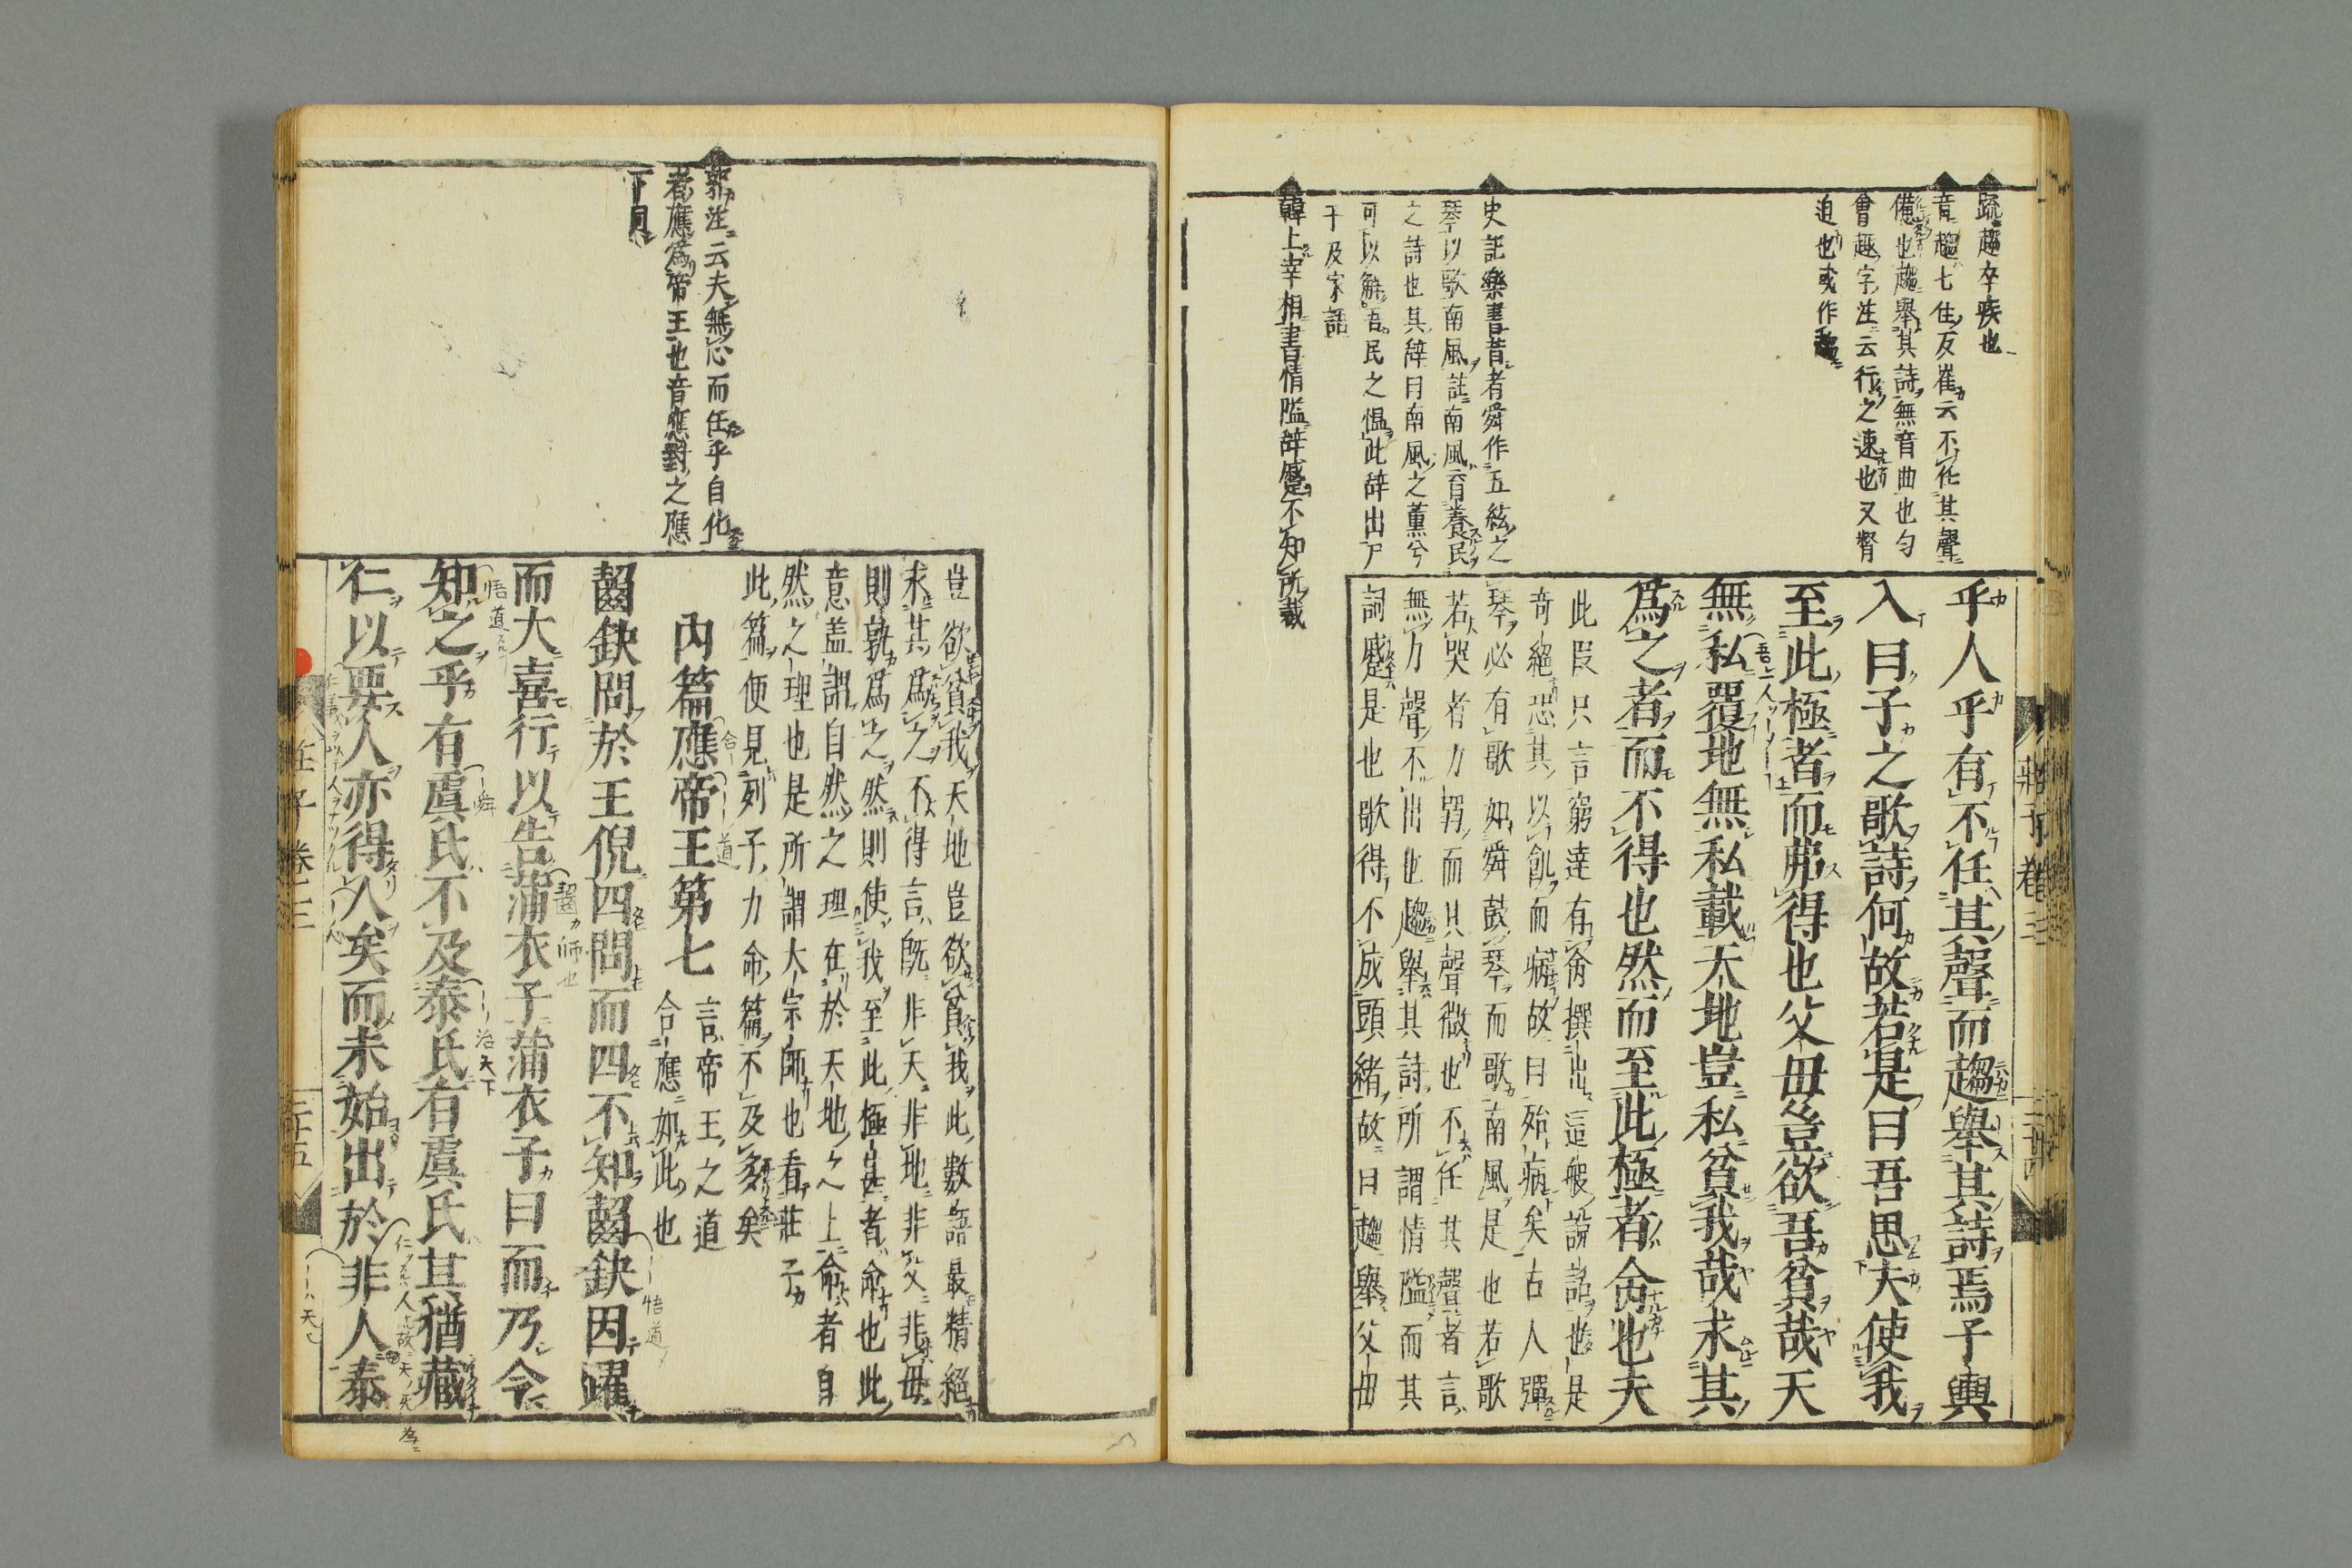 疏趨卒疾也
音趨七住反崔云不任其聲
憊也趨舉其詩無音曲也勻
會趣字注云行之速也又督
迫也或作
史記樂書昔者舜作五絃之
琴以歌南風註南風育養民
之詩也其辞曰南風之薰兮
可以解吾民之慍此辞出尸
子及家語
韓上宰相書情隘辞蹙不知所裁
乎人乎有不任其聲而趨舉其詩焉子輿
入曰子之歌詩何故若是曰吾思夫使我
至此極者而弗得也父毋豈欲吾貧哉天
無私覆地無私載天地豈私貧我哉求其
爲之者而不得也然而至此極者命也夫
此段只言窮達有命撰出這般說話也是
奇絕恐其以飢而病故曰殆病矣古人彈
琴必有歌如舜鼓琴而歌南風是也若歌
若哭者力羸而其聲微也不任其聲者言
無力聲不出也趨舉其詩所謂情隘而其
詞蹙是也歌得不成頭緒故曰趨舉父毋
莊子卷三
三十四
郭注云夫無心而任乎自化
者應爲帝王也音應對之應
下同
豈欲貧我天地豈欲貧我此數語最精絕
求其爲之不得言旣非天非地非父非毋
則孰爲之然則使我至此極是者命也此
意盖謂自然之理在於天地之上命者自
然之理也是所謂大宗師也看莊子
此篇便見列子力命篇不及多矣
內篇應帝王第七
言帝王之道
合應如此也
齧鈌問於王倪四問而四不知齧鈌因躍
而大喜行以告蒲衣子蒲衣子曰而乃今
知之乎有虞氏不及泰氏有虞氏其猶藏
仁以要人亦得人矣而未始出於非人泰
莊子卷三
三十五